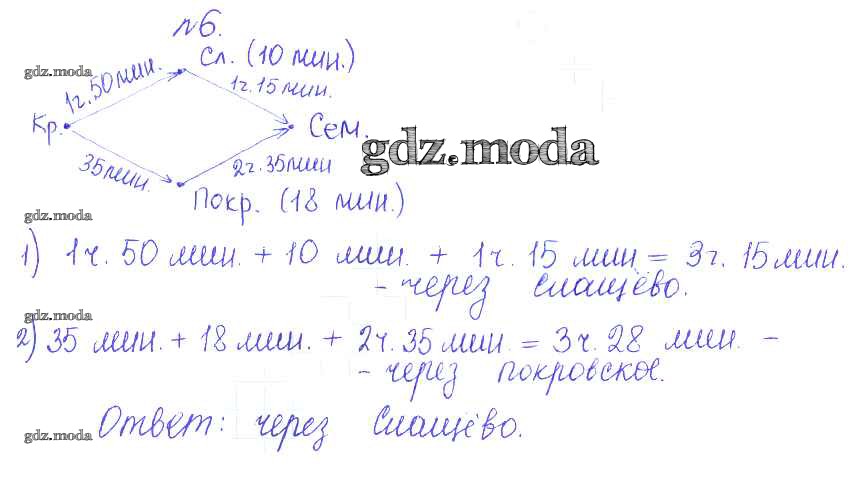 №6.
Сл. (10 мин.)
gdz.moda
1ч.50мин.
1ч.15мин.
Кр.
Сем.
gdz.moda
35мин.
2ч.35мин
Покр. (18 мин.)
gdz.moda
1) 1ч. 50 мин. + 10 мин. + 1ч. 15 мин = 3ч. 15мин.
- через Слащёво.
gdz.moda
2) 35 мин. + 18 мин. + 2ч. 35 мин. = 3ч. 28 мин. -
- через Покровское.
Ответ: через Слащёво.
gdz.moda